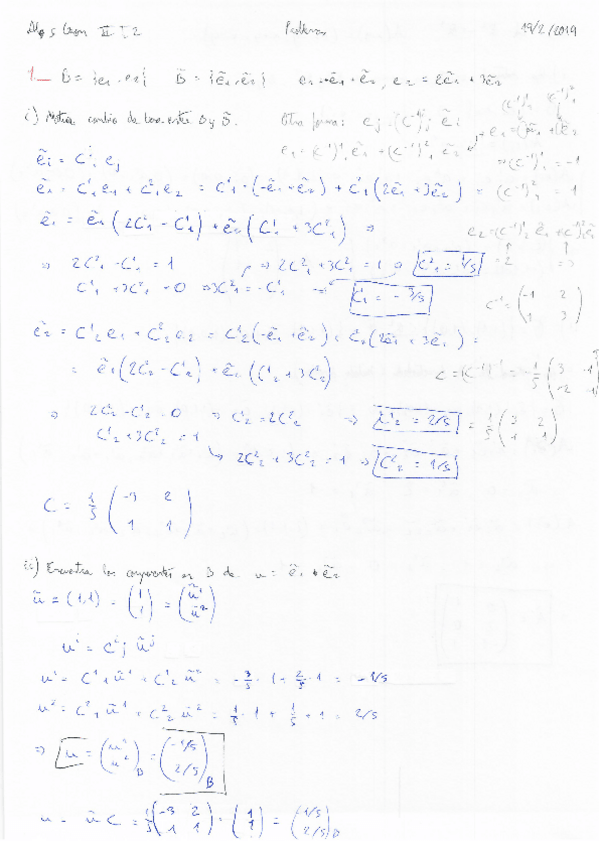 Alg s Geom II T2 Problemas 19/2/2019
1._ B = {e₁, e₂} B̃ = {ẽ₁, ẽ₂} e₁ = -ẽ₁ + ẽ₂, e₂ = 2ẽ₁ + 3ẽ₂
i) cambio de base entre B y B̃.
Otra forma: eⱼ = (C⁻¹)ⁱⱼ ẽᵢ
(C⁻¹)¹₁ (C⁻¹)²₁
e₁ = (C⁻¹)¹₁ ẽ₁ + (C⁻¹)²₁ ẽ₂
⇒ (C⁻¹)¹₁ = -1
(C⁻¹)²₁ = 1
ẽᵢ = Cʲᵢ eⱼ
ẽ₁ = C¹₁ e₁ + C²₁ e₂ = C¹₁ (-ẽ₁ + ẽ₂) + C²₁ (2ẽ₁ + 3ẽ₂) =
ẽ₁ = ẽ₁ (2C²₁ - C¹₁) + ẽ₂ (C¹₁ + 3C²₁) ⇒
e₂ = (C⁻¹)¹₂ ẽ₁ + (C⁻¹)²₂ ẽ₂
= 2 = 3
⇒ 2C²₁ - C¹₁ = 1 ⇒ 2C²₁ + 3C²₁ = 1 ⇒ C²₁ = 1/5
C¹₁ + 3C²₁ = 0 ⇒ 3C²₁ = -C¹₁ → C¹₁ = -3/5
C⁻¹ = (-1 2
1 3)
ẽ₂ = C¹₂ e₁ + C²₂ e₂ = C¹₂ (-ẽ₁ + ẽ₂) + C²₂ (2ẽ₁ + 3ẽ₂) =
= ẽ₁ (2C²₂ - C¹₂) + ẽ₂ (C¹₂ + 3C²₂)
⇒ 2C²₂ - C¹₂ = 0 ⇒ C¹₂ = 2C²₂ ⇒ C¹₂ = 2/5
C¹₂ + 3C²₂ = 1
↳ 2C²₂ + 3C²₂ = 1 ⇒ C²₂ = 1/5
C = 1/5 (-3 2
1 1)
ii) Encuentra las componentes en B de u = ẽ₁ + ẽ₂
ũ = (1,1) = (1 1) = (ũ¹ ũ²)
uⁱ = Cⁱⱼ ũʲ
u¹ = C¹₁ ũ¹ + C¹₂ ũ² = -3/5 · 1 + 2/5 · 1 = -1/5
u² = C²₁ ũ¹ + C²₂ ũ² = 1/5 · 1 + 1/5 · 1 = 2/5
⇒ u = (u¹ u²)B = (-1/5 2/5)B
u = ũ C = 1/5 (-3 2 1 1) · (1 1) = (-1/5 2/5)B